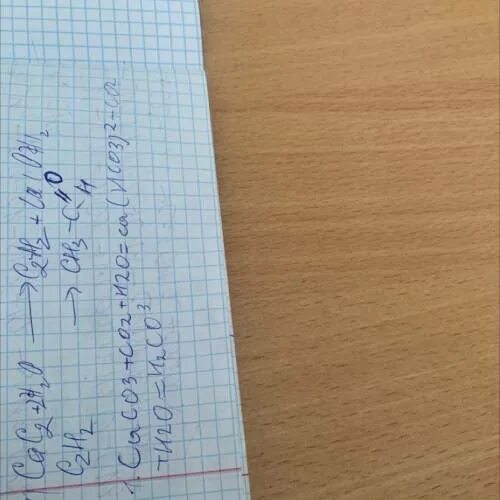 CaC2+2H2O → C2H2 + Ca(OH)2
C2H2 → CH3-C=O H
1. CaCO3+CO2+H2O=Ca(HCO3)2+CO2
+H2O=H2CO3